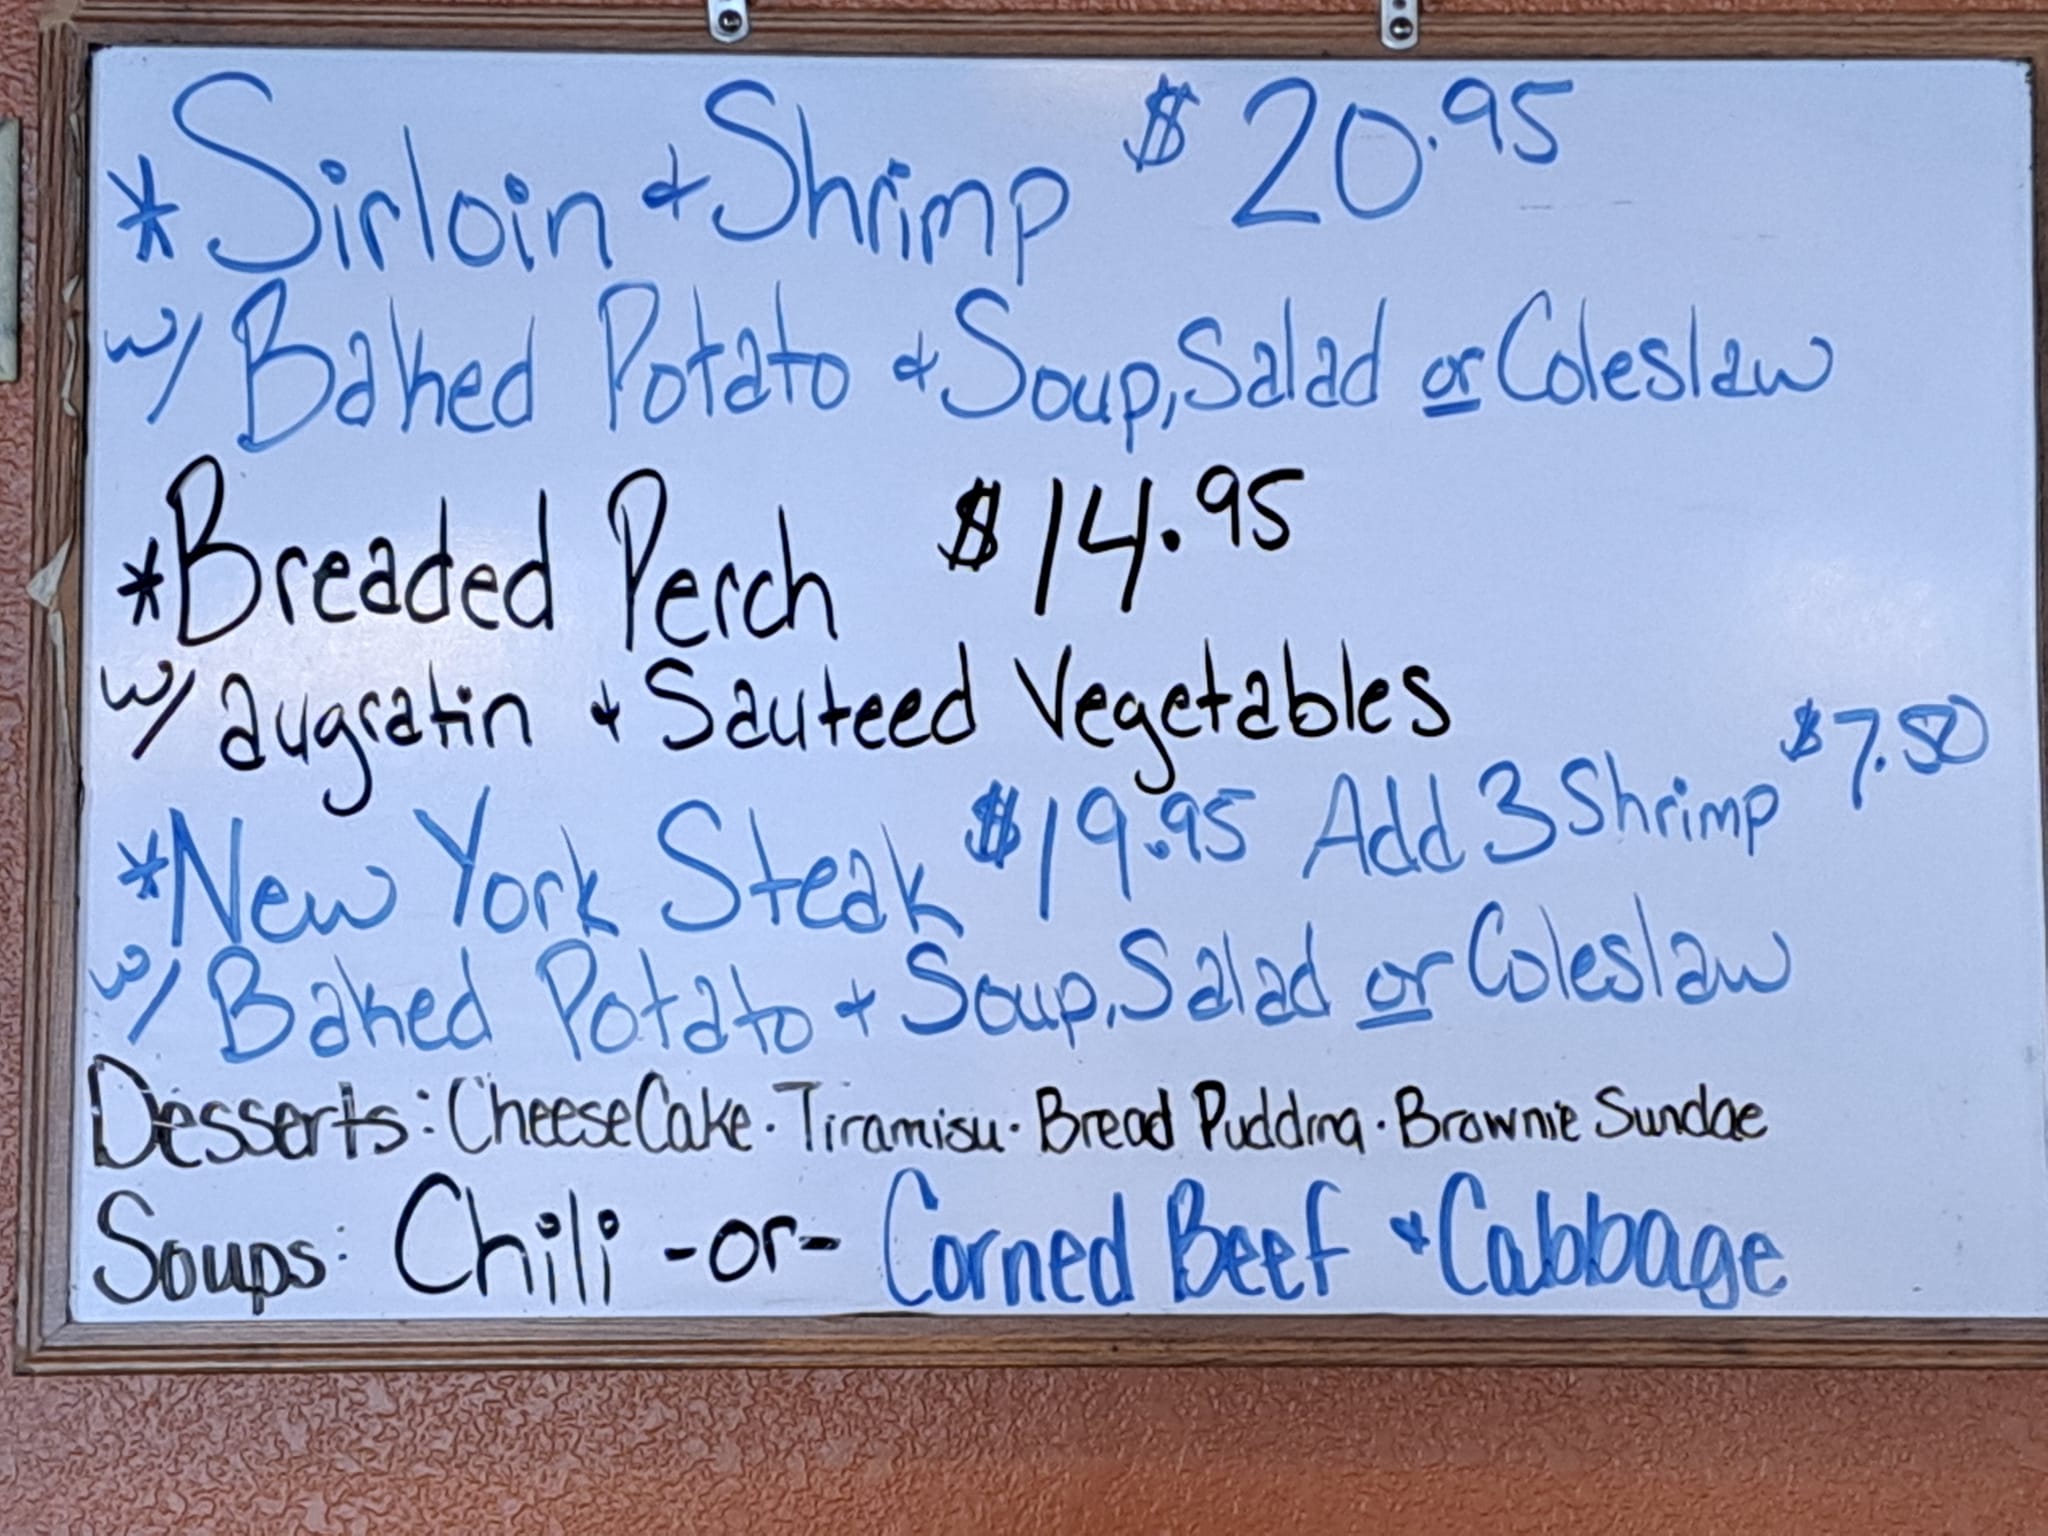 *Sirloin & Shrimp $20.95
w/ Baked Potato & Soup, Salad or Coleslaw
*Breaded Perch $14.95
w/ augratin & Sauteed Vegetables
*New York Steak $19.95 Add 3 Shrimp $7.50
w/ Baked Potato & Soup, Salad or Coleslaw
Desserts: CheeseCake · Tiramisu · Bread Pudding · Brownie Sundae
Soups: Chili -or- Corned Beef & Cabbage